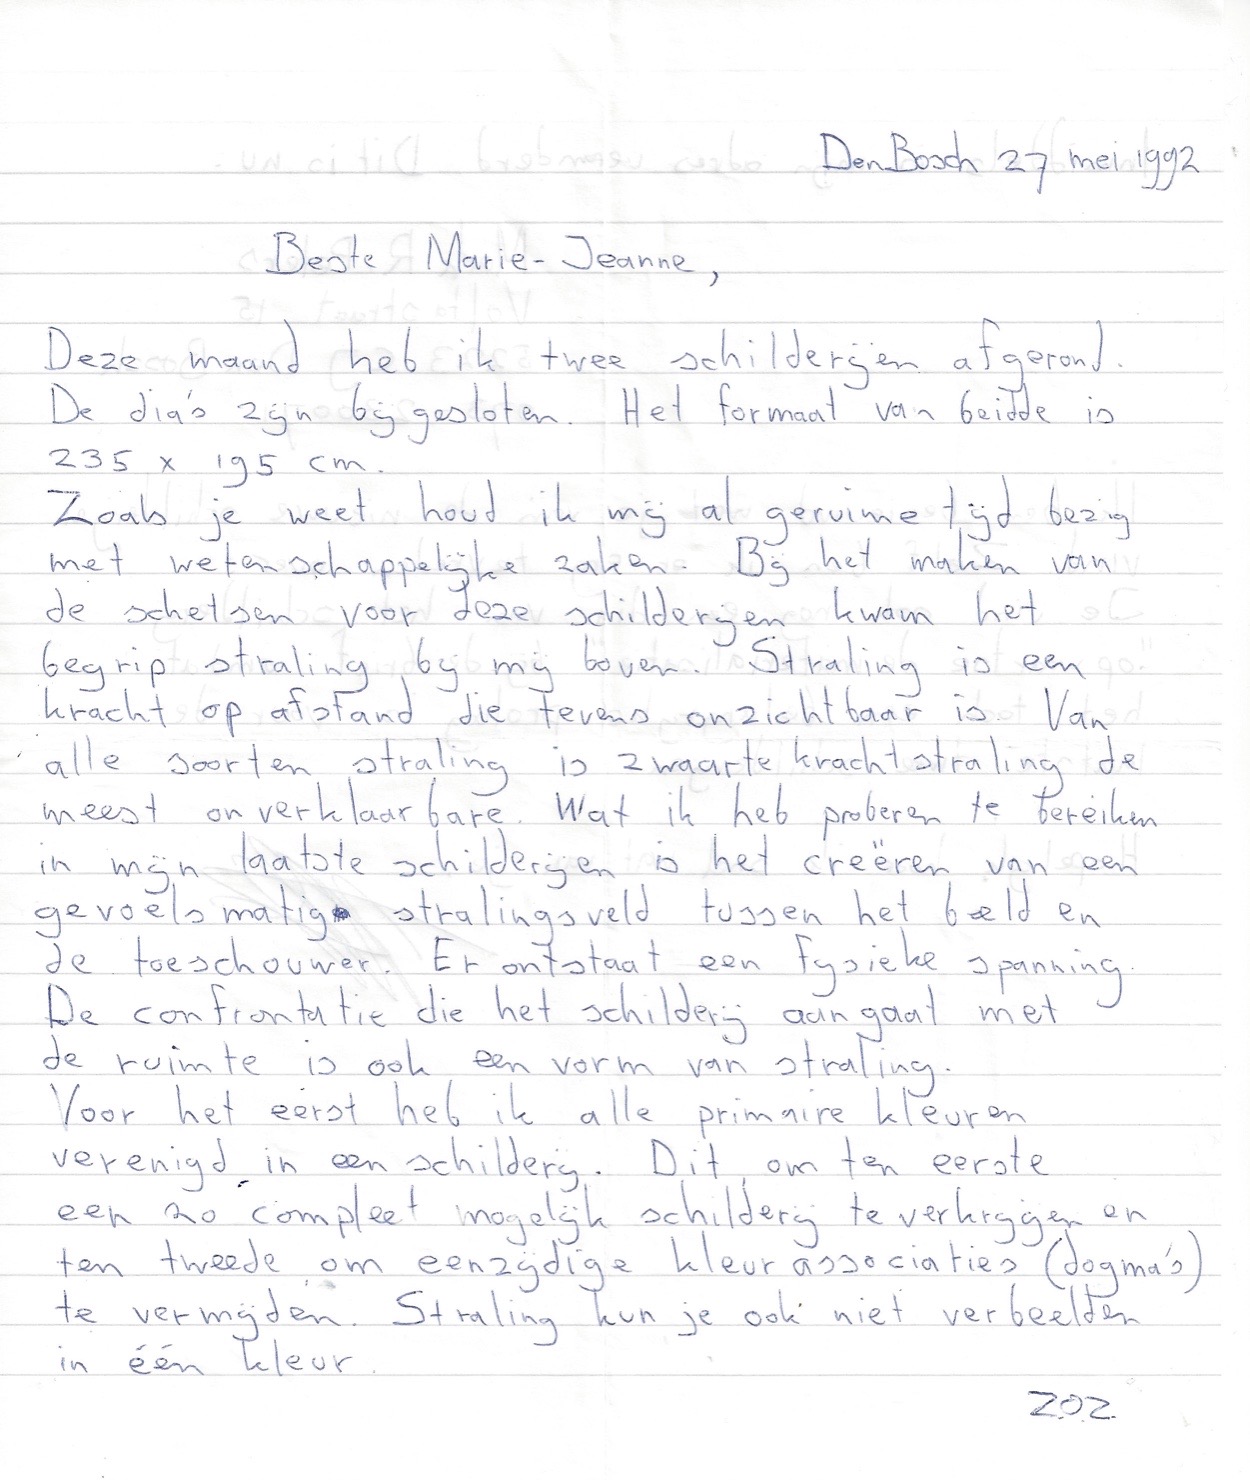 Den Bosch 27 mei 1992
Beste Marie-Jeanne,
Deze maand heb ik twee schilderijen afgerond.
De dia's zijn bijgesloten. Het formaat van beidde is
235 x 195 cm.
Zoals je weet houd ik mij al geruime tijd bezig
met wetenschappelijke zaken. Bij het maken van
de schetsen voor deze schilderijen kwam het
begrip straling bij mij boven. Straling is een
kracht op afstand die tevens onzichtbaar is. Van
alle soorten straling is zwaartekrachtstraling de
meest onverklaarbare. Wat ik heb proberen te bereiken
in mijn laatste schilderijen is het creëren van een
gevoelsmatig stralingsveld tussen het beeld en
de toeschouwer. Er ontstaat een fysieke spanning.
De confrontatie die het schilderij aangaat met
de ruimte is ook een vorm van straling.
Voor het eerst heb ik alle primaire kleuren
verenigd in een schilderij. Dit om ten eerste
een zo compleet mogelijk schilderij te verkrijgen en
ten tweede om eenzijdige kleurassociaties (dogma's)
te vermijden. Straling kun je ook niet verbeelden
in één kleur.
Z.O.Z.